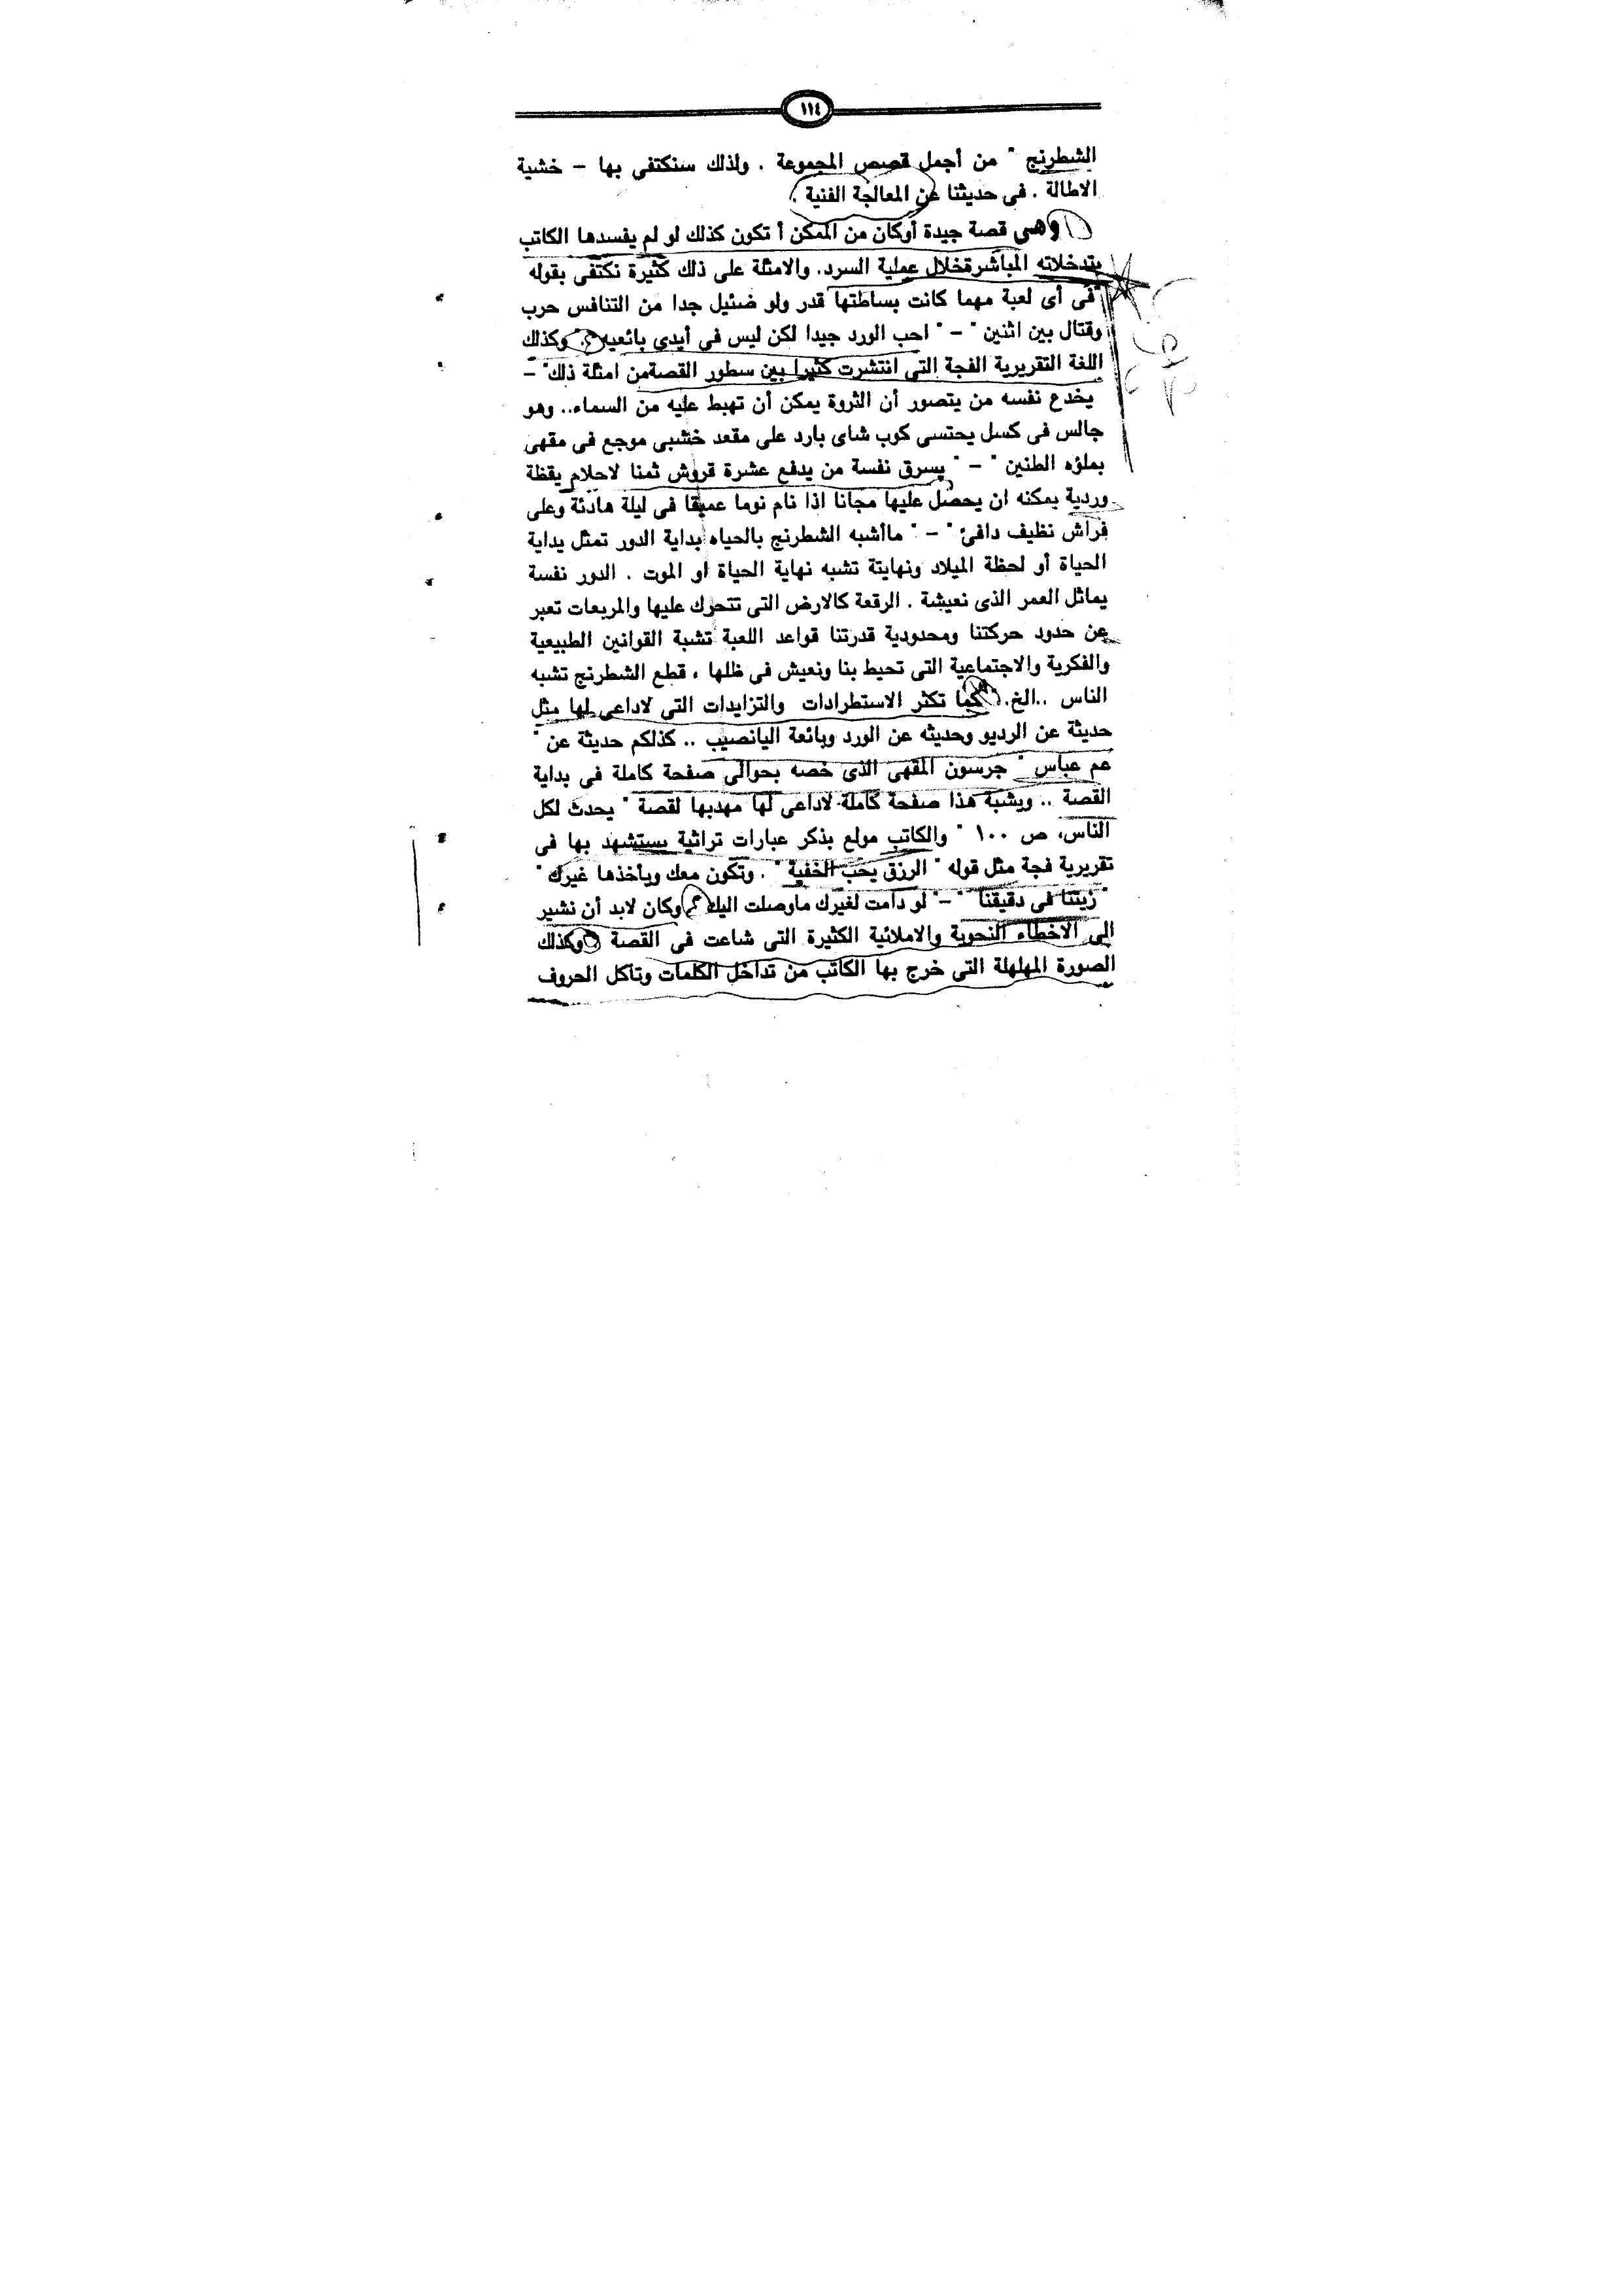 ١١٤
الشطرنج " من أجمل قصص المجموعة . ولذلك سنكتفى بها – خشية
الاطالة . فى حديثنا عن المعالجة الفنية .
وهى قصة جيدة أوكان من الممكن أ تكون كذلك لو لم يفسدها الكاتب
بتدخلاته المباشرةخلال عملية السرد. والامثلة على ذلك كثيرة نكتفى بقوله
"فى أى لعبة مهما كانت بساطتها قدر ولو ضئيل جدا من التنافس حرب
وقتال بين اثنين " – " احب الورد جيدا لكن ليس فى أيدى بائعيه " وكذلك
اللغة التقريرية الفجة التى انتشرت كثيرا بين سطور القصةمن امثلة ذلك" –
يخدع نفسه من يتصور أن الثروة يمكن أن تهبط عليه من السماء.. وهو
جالس فى كسل يحتسى كوب شاى بارد على مقعد خشبى موجع فى مقهى
بملؤه الطنين " – " يسرق نفسة من يدفع عشرة قروش ثمنا لاحلام يقظة
وردية يمكنه ان يحصل عليها مجانا اذا نام نوما عميقا فى ليلة هادئة وعلى
فراش نظيف دافئ " – " ماأشبه الشطرنج بالحياه بداية الدور تمثل بداية
الحياة أو لحظة الميلاد ونهايتة تشبه نهاية الحياة او الموت . الدور نفسة
يماثل العمر الذى نعيشة . الرقعة كالارض التى نتحرك عليها والمربعات تعبر
عن حدود حركتنا ومحدودية قدرتنا قواعد اللعبة تشبة القوانين الطبيعية
والفكرية والاجتماعية التى تحيط بنا ونعيش فى ظلها ، قطع الشطرنج تشبه
الناس ..الخ. كما تكثر الاستطرادات والتزايدات التى لاداعى لها مثل
حديثة عن الرديو وحديثه عن الورد وبائعة اليانصيب .. كذلكم حديثة عن "
عم عباس " جرسون المقهى الذى خصه بحوالى صفحة كاملة فى بداية
القصة .. ويشبة هذا صفحة كاملة لاداعى لها مهدبها لقصة " يحدث لكل
الناس، ص ١٠٠ " والكاتب مولع بذكر عبارات تراثية يستشهد بها فى
تقريرية فجة مثل قوله " الرزق يحب الخفية " . وتكون معك ويأخذها غيرك "
"زيتنا فى دقيقنا " –" لو دامت لغيرك ماوصلت اليك " وكان لابد أن نشير
الى الاخطاء النحوية والاملائية الكثيرة التى شاعت فى القصة وكذلك
الصورة المهلهلة التى خرج بها الكاتب من تداخل الكلمات وتآكل الحروف